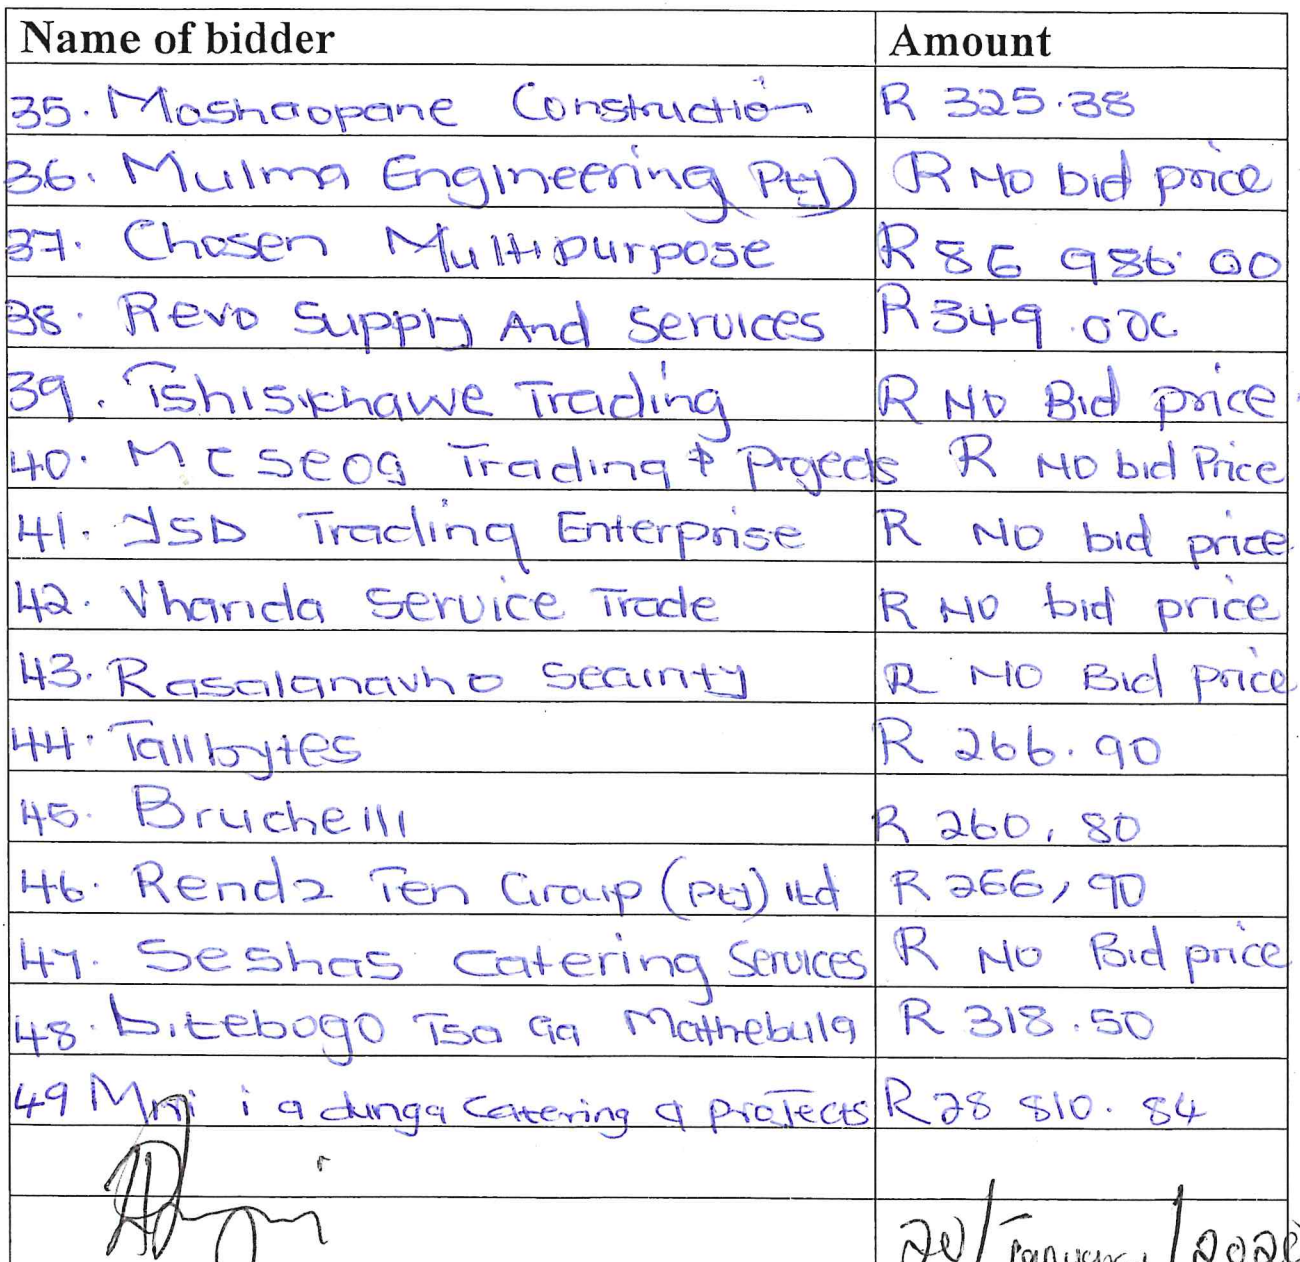 Name of bidder Amount
35. Mashaopane Construction R 325.38
36. Mulma Engineering Pty) R No bid price
37. Chosen Multipurpose R 86 986.00
38. Revo Supply And Services R 349.00
39. Tshisikhawe Trading R No Bid price
40. Mcseog Trading & Projects R No bid Price
41. JSD Trading Enterprise R No bid price
42. Vhanda Service Trade R No bid price
43. Rasalanavho Security R No Bid price
44. Tallbytes R 266.90
45. Bruchelli R 260,80
46. Rendz Ten Group (Pty) ltd R 266,90
47. Seshas Catering Services R No Bid price
48. Ditebogo Tsa ga Mathebula R 318.50
49 i a dunga Catering & projects R28 810.84
20/January/